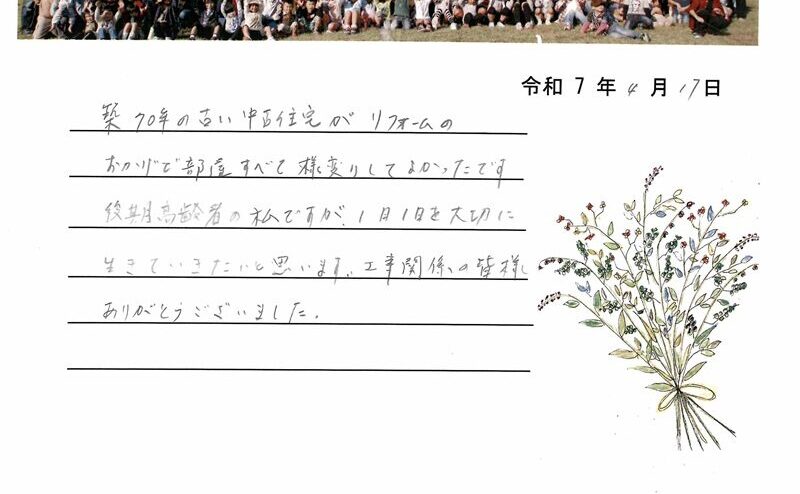 令和 7 年 4 月 17日
築70年の古い中古住宅が リフォームの
おかげで部屋すべて様変りしてよかったです
後期高齢者の私ですが、1月1日を大切に
生きていきたいと思います。工事関係の皆様
ありがとうございました。